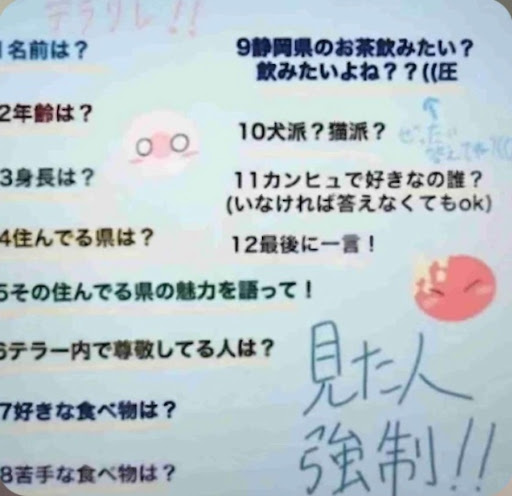 テラリレ!!
1名前は?
2年齢は?
3身長は?
4住んでる県は?
5その住んでる県の魅力を語って!
6テラー内で尊敬してる人は?
7好きな食べ物は?
8苦手な食べ物は?
9静岡県のお茶飲みたい?
飲みたいよね??((圧
10犬派?猫派?
11カンヒュで好きなの誰?
(いなければ答えなくてもok)
12最後に一言!
見た人
強制!!